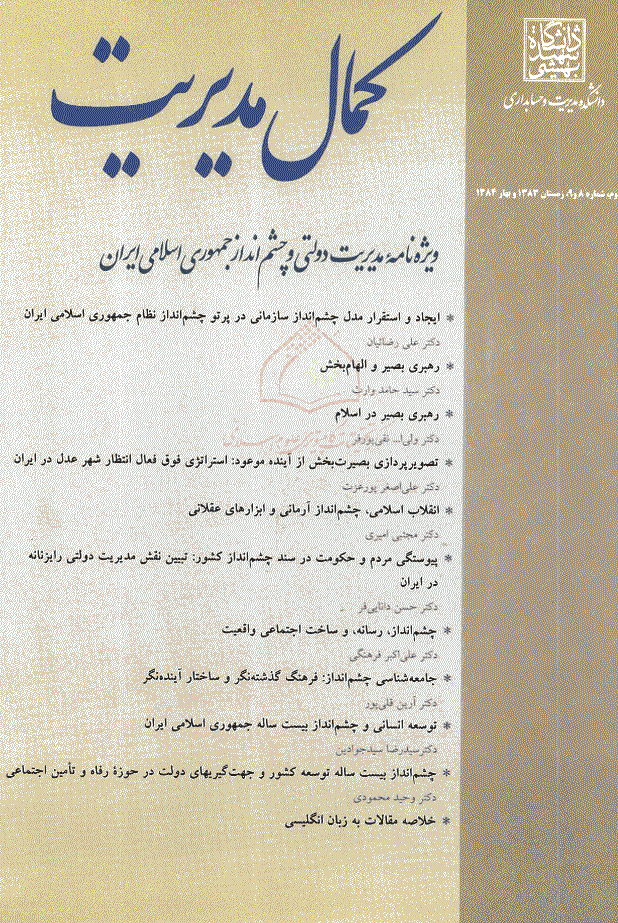 دانشگاه
شهید
بهشتی
دانشکده مدیریت و حسابداری
شماره ۸ و ۹، زمستان ۱۳۸۳ و بهار ۱۳۸۴
کمال مدیریت
ویژه نامهٔ مدیریت دولتی و چشم انداز جمهوری اسلامی ایران
* ایجاد و استقرار مدل چشم‌انداز سازمانی در پرتو چشم‌انداز نظام جمهوری اسلامی ایران
دکتر علی رضائیان
* رهبری بصیر و الهام‌بخش
دکتر سید حامد وارث
* رهبری بصیر در اسلام
دکتر ولی‌ا... نقی‌پورفر
* تصویرپردازی بصیرت‌بخش از آینده موعود: استراتژی فوق فعال انتظار شهر عدل در ایران
دکتر علی‌اصغر پورعزت
* انقلاب اسلامی، چشم‌انداز آرمانی و ابزارهای عقلانی
دکتر مجتبی امیری
* پیوستگی مردم و حکومت در سند چشم‌انداز کشور: تبیین نقش مدیریت دولتی رایزنانه
در ایران
دکتر حسن دانایی‌فر
* چشم‌انداز، رسانه، و ساخت اجتماعی واقعیت
دکتر علی‌اکبر فرهنگی
* جامعه‌شناسی چشم‌انداز: فرهنگ گذشته‌نگر و ساختار آینده‌نگر
دکتر آرین قلی‌پور
* توسعه انسانی و چشم‌انداز بیست ساله جمهوری اسلامی ایران
دکترسیدرضا سیدجوادین
* چشم‌انداز بیست ساله توسعه کشور و جهت‌گیریهای دولت در حوزهٔ رفاه و تأمین اجتماعی
دکتر وحید محمودی
* خلاصه مقالات به زبان انگلیسی